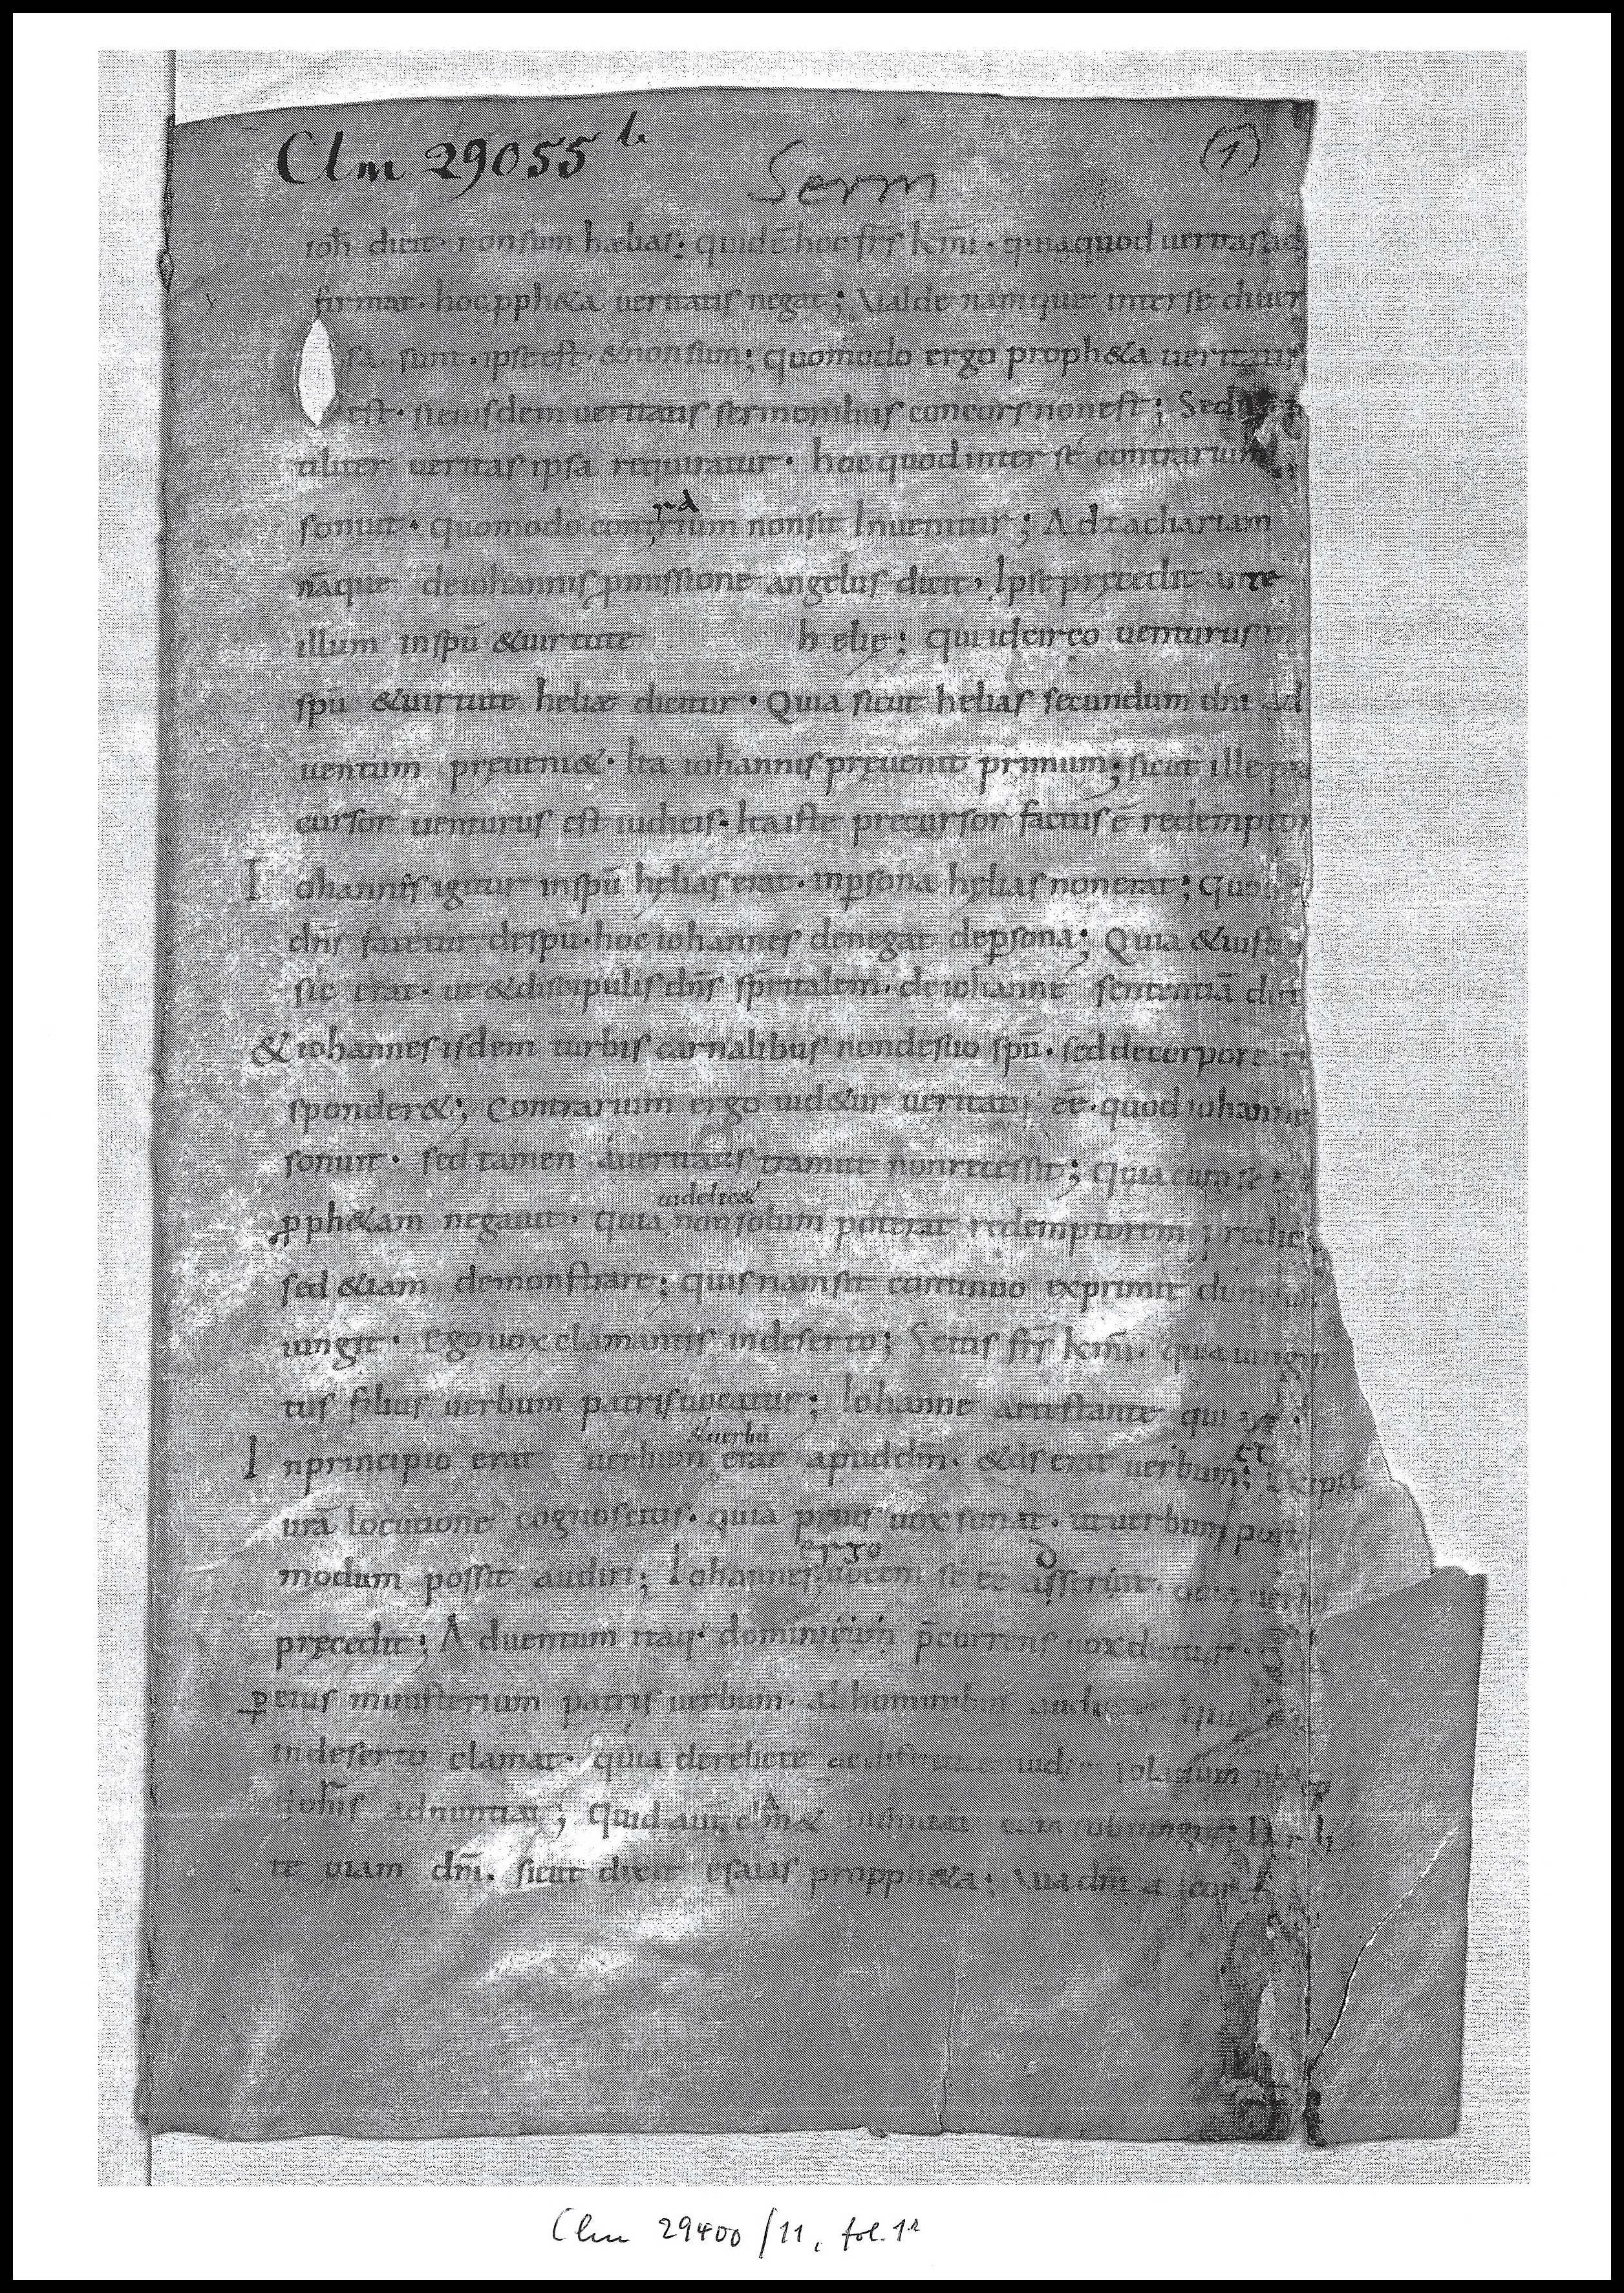 Clm 29055 b
Serm
(1)
ioh̄ dicit· non sum hælias; quid ē hoc frs̄ km̄i· quia quod ueritas ad
firmat· hoc pph&a ueritatis negat; Valde namque inter sé diuer
sa sunt· ipse est· & non sum; quomodo ergo proph&a ueritatis
est· si eiusdem ueritatis sermonibus concors non est; Sed
tiliter ueritas ipsa requiratur· hoc quod inter sé contrarium
sonuit· quomodo contrium non sit Inuenitur; Ad zachariam
rā
nāque de iohannis pmissione angelus dicit· Ipse pręcedit ante
illum in spū & uirtute h elię; qui idcirco uenturus in
spū & uirtute heliæ dicitur· Quia sicut helias secundum dn̄i ad
uentum pręueni&· Ita iohannis pręuenit primum; sicut ille pre
cursor uenturus est iudicis· Ita iste precursor factus ē redemptor
Iohannis igitur in spū hęlias erat· in psona hęlias non erat; quod
dn̄s fatetur de spū· hoc iohannes denegat de psona; Quia & iust
sic erat· ut & discipulis dn̄s sp̄italem· de iohanne sententiā dic
& iohannes isdem turbis carnalibus non de suo spū· sed de corpore
sponder&; Contrarium ergo uid&ur ueritati ēē· quod iohanne
sonuit· sed tamen á ueritatis tramite non recessit; quia cum se
uidelic&
pph&am negauit· quia non solum poterat redemptorem
sed &iam demonstrare; quis nam sit continuo exprimit dum
iungit· Ego uox clamantis in deserto; Scitis frs̄ km̄i· quia unige
tus filius uerbum patris uocatur; Iohanne attestante qui
& uerbū
In principio erat uerbum erat apud dm̄· & ds̄ erat uerbum; Ex ipsa
et
urā locutione cognoscitis· quia prius uox sonat· ut uerbum post
modum possit audiri; Iohannes uocem sé ēē asserit· quia uerbū
ergo
pręcedit; Aduentum itaq· dominicum p̄currens uox dicitur·
p eius ministerium patris uerbum· ab hominibus
in deserto clamat· quia derelictę
adnuntiat; quid aut clam&
te uiam dn̄i· sicut dixit esaias propph&a; Via dn̄i ad cor
Clm 29400/11, fol. 1r